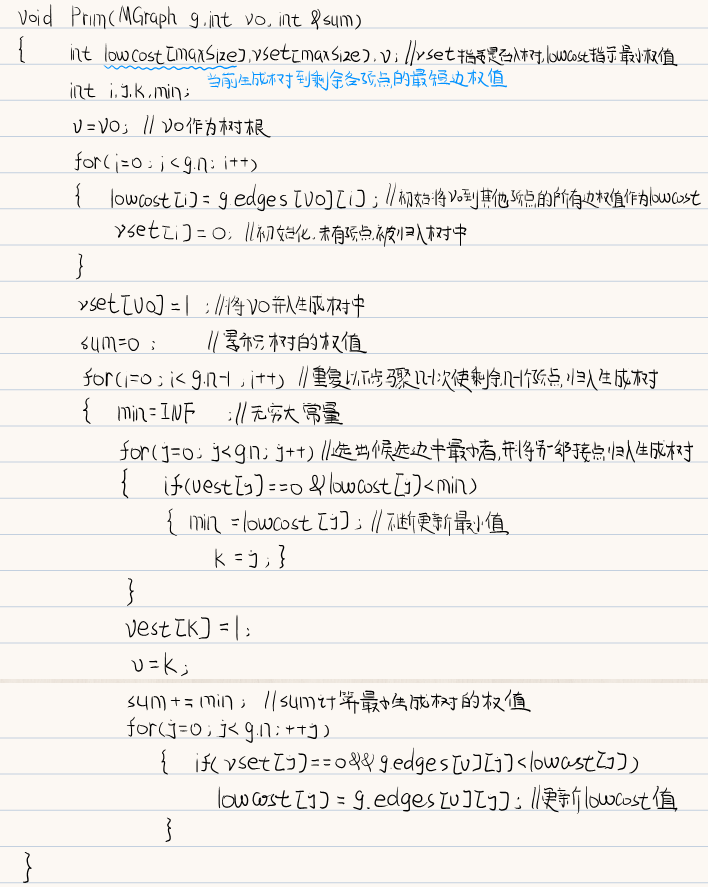 void Prim(MGraph g,int v0,int &sum)
{ int lowcost[maxSize],vset[maxSize],v; //vset指示是否入树,lowcost指示最小权值
当前生成树到剩余各顶点的最短边权值
int i,j,k,min;
v=v0; // v0作为树根
for(i=0;i<g.n;i++)
{ lowcost[i]=g.edges[v0][i]; //初始将v0到其他顶点的所有边权值作为lowcost
vset[i]=0; //初始化,未有顶点被归入树中
}
vset[v0]=1 ;//将v0并入生成树中
sum=0; //累积树的权值
for(i=0;i<g.n-1;i++) //重复以下步骤n-1次使剩余n-1个顶点归入生成树
{ min=INF ;//无穷大常量
for(j=0;j<g.n;j++)//选出候选边中最小者,并将另一邻接点归入生成树
{ if(vest[j]==0 & lowcost[j]<min)
{ min =lowcost[j]; //不断更新最小值
k=j;}
}
vest[k]=1;
v=k;
sum+=min; //sum计算最小生成树的权值
for(j=0;j<g.n;++j)
{ if(vset[j]==0&&g.edges[v][j]<lowcost[j])
lowcost[j]=g.edges[v][j]; //更新lowcost值
}
}